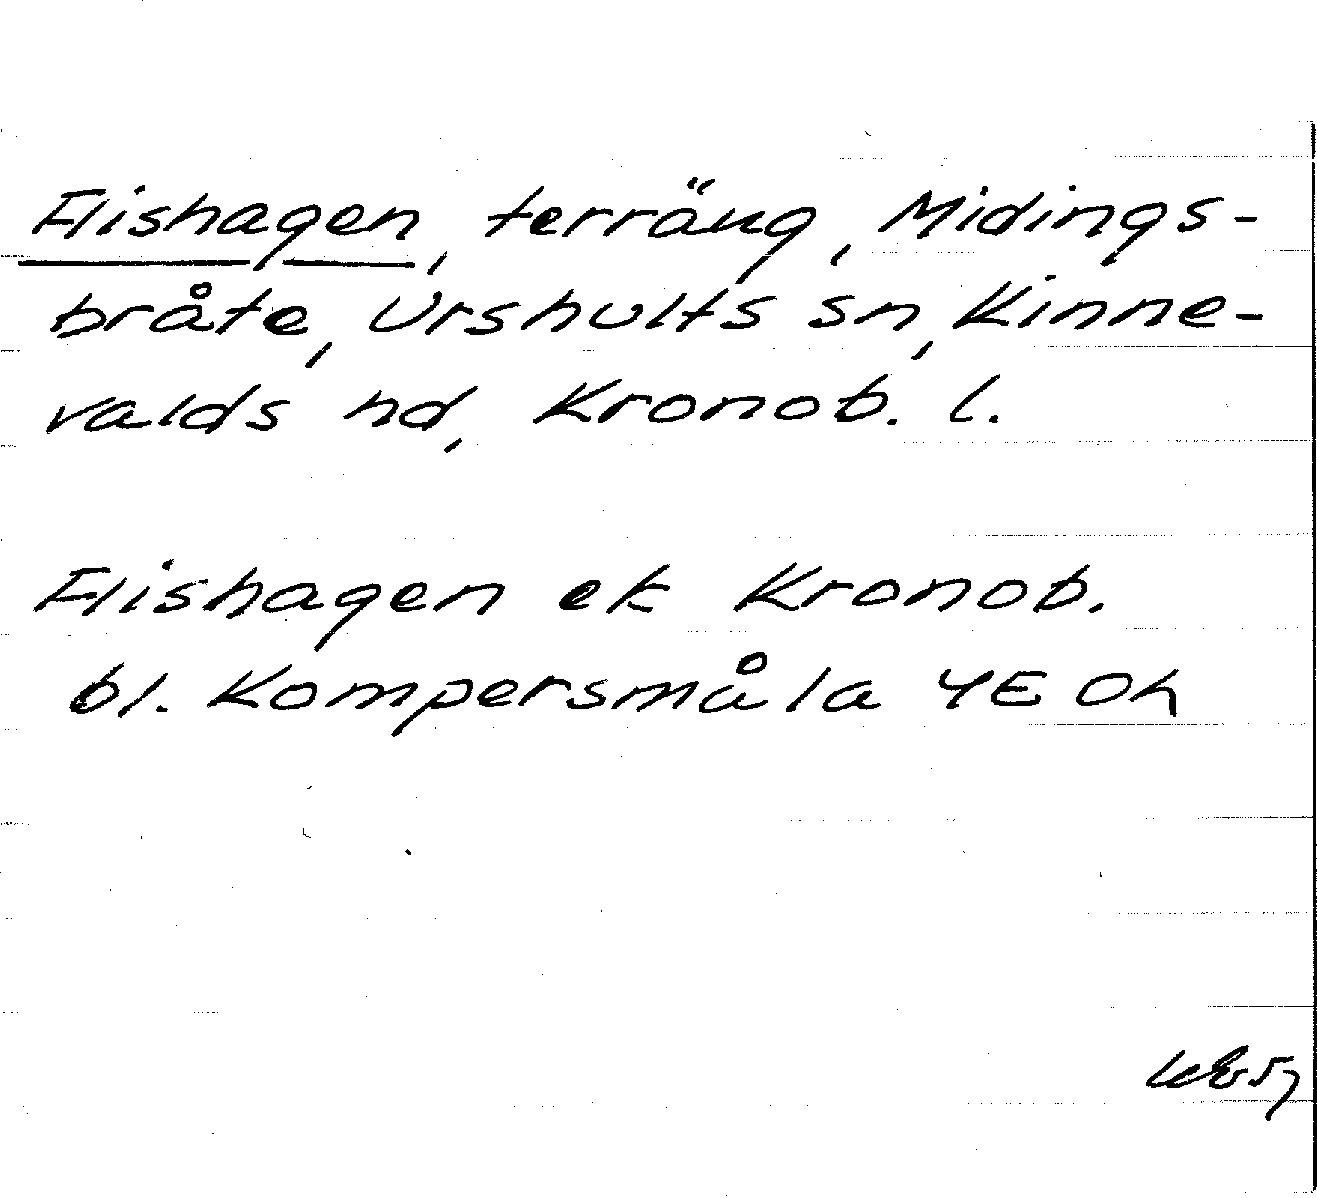 Flishagen, terräng, Midings-
bråte, Urshults sn, Kinne-
valds hd, Kronob. l.
Flishagen ek Kronob.
bl. Kompersmåla 4E 0h